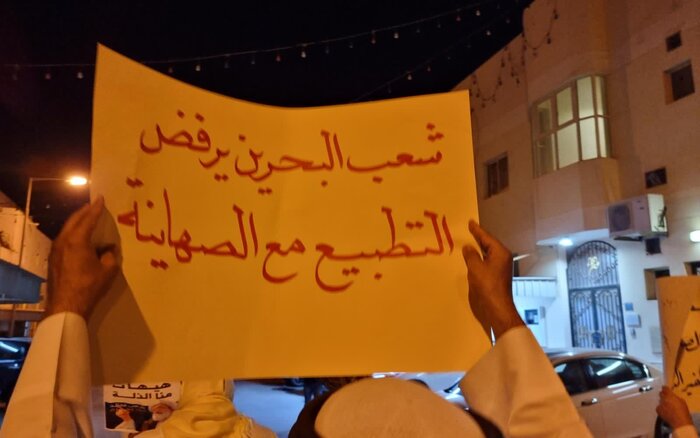 شعب البحرين يرفض
التطبيع مع الصهاينة
هيهات
منا الذلة